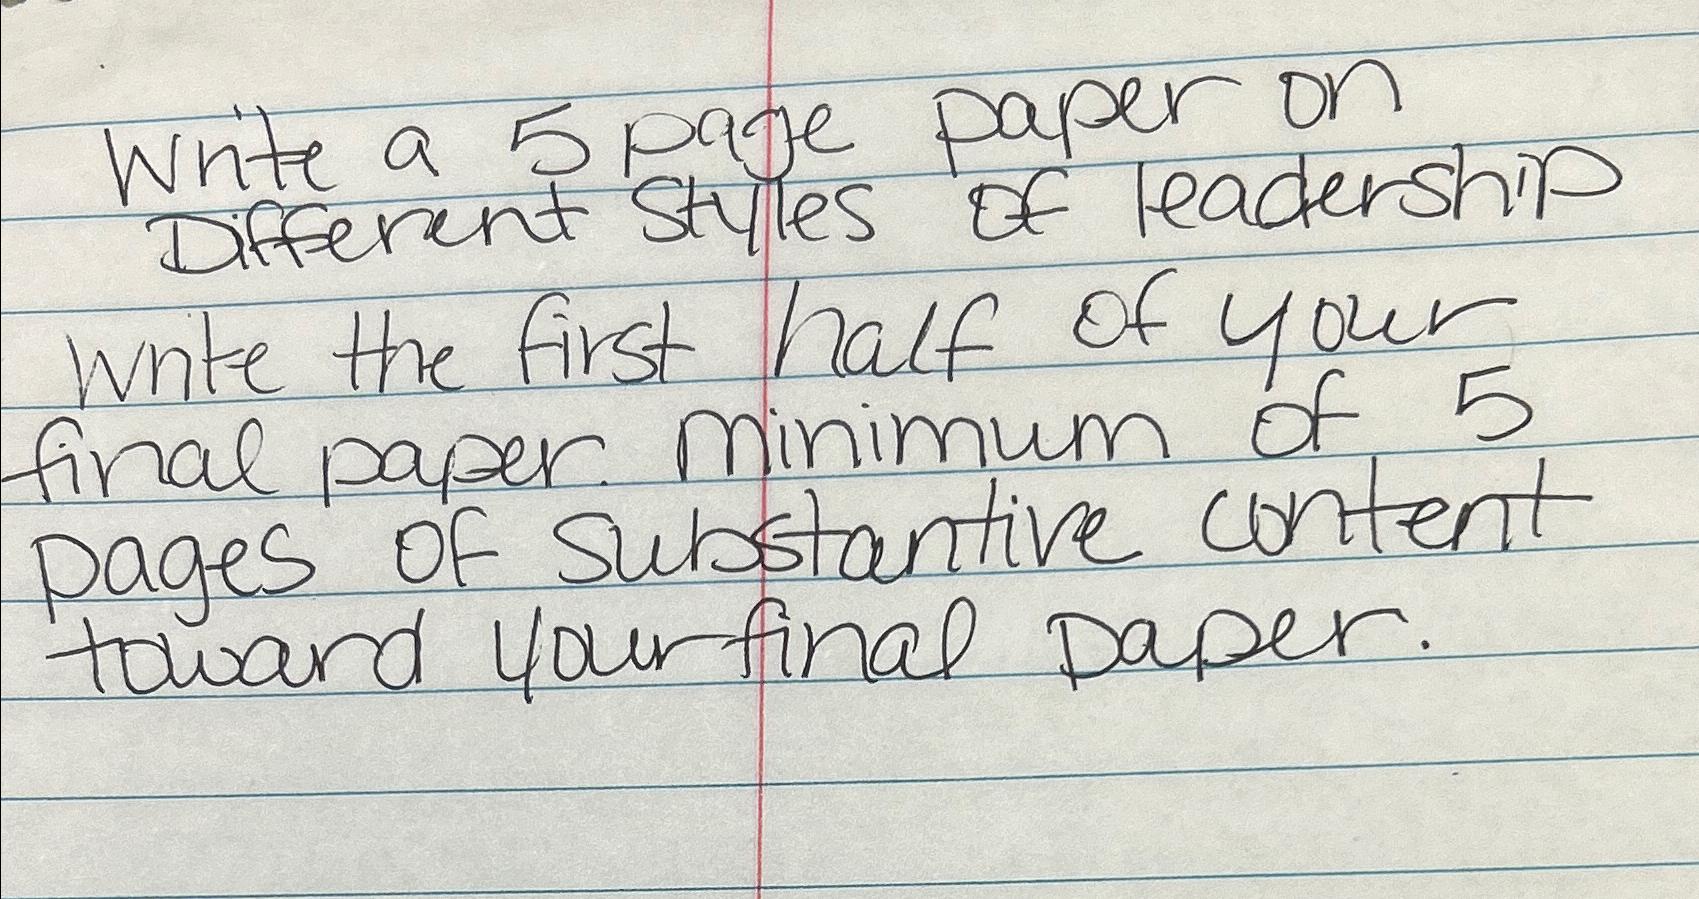 Write a 5 page paper on
Different Styles of leadership
Write the first half of your
final paper. Minimum of 5
pages of substantive content
toward your final paper.